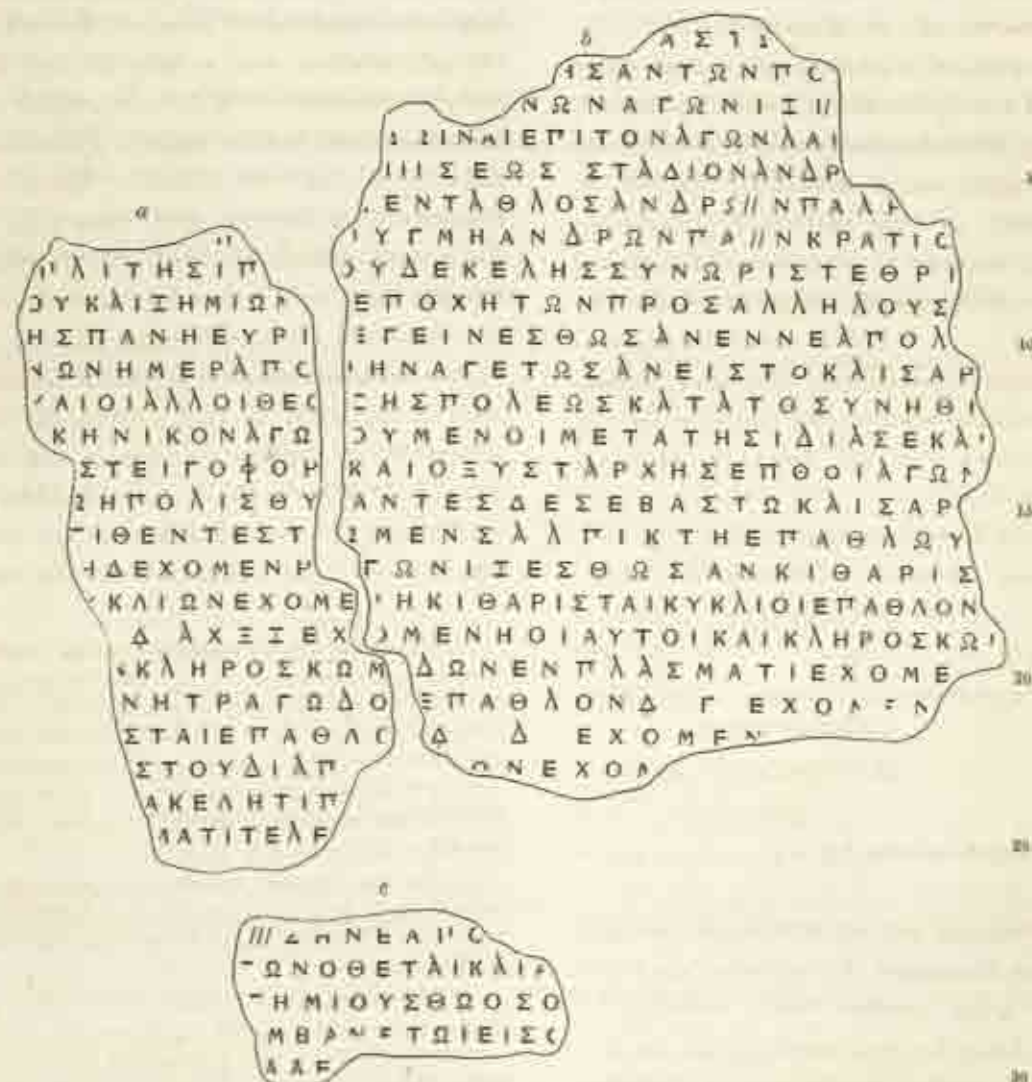 a
ΠΛΙΤΗΣΙΠ
ΟΥΚΑΙΞΗΜΙΩΝ
ΗΣΠΑΝΗΕΥΡΙ
ΝΩΝΗΜΕΡΑΠΟ
ΚΑΙΟΙΑΛΛΟΙΘΕΟ
ΚΗΝΙΚΟΝΑΓΩ
ΣΤΕΙΓΟΦΟΗ
ΩΗΠΟΛΙΣΘΥ
ΤΙΘΕΝΤΕΣΤ
ΗΔΕΧΟΜΕΝΗ
ΥΚΛΙΩΝΕΧΟΜΕ
Δ ΑΧΞΞΕΧ
ΚΛΗΡΟΣΚΩΜ
ΝΗΤΡΑΓΩΔΟ
ΣΤΑΙΕΠΑΘΛΟ
ΣΤΟΥΔΙΑΠ
ΑΚΕΛΗΤΙΠ
ΜΑΤΙΤΕΛΕ
b
ΑΣΤΩ
ΗΣΑΝΤΩΝΠΟ
ΝΩΝΑΓΩΝΙΞ
ΩΙΝΑΙΕΠΙΤΟΝΑΓΩΝΑΑΙ
ΙΙΙΣΕΩΣ ΣΤΑΔΙΟΝΑΝΔΡ
ΕΝΤΑΘΛΟΣΑΝΔΡΩΝΠΑΛΗ
ΥΓΜΗΑΝΔΡΩΝΠΑ//ΝΚΡΑΤΙΟ
ΟΥΔΕΚΕΛΗΣΣΥΝΩΡΙΣΤΕΘΡΙ
ΕΠΟΧΗΤΩΝΠΡΟΣΑΛΛΗΛΟΥΣ
ΕΓΕΙΝΕΣΘΩΣΑΝΕΝΝΕΑΠΟΛ
ΗΝΑΓΕΤΩΣΑΝΕΙΣΤΟΚΑΙΣΑΡ
ΞΗΣΠΟΛΕΩΣΚΑΤΑΤΟΣΥΝΗΘΙ
ΟΥΜΕΝΟΙΜΕΤΑΤΗΣΙΔΙΑΣΕΚΑ
ΚΑΙΟΞΥΣΤΑΡΧΗΣΕΠΘΟΙΑΓΩΝ
ΑΝΤΕΣΔΕΣΕΒΑΣΤΩΚΑΙΣΑΡ
ΣΜΕΝΣΑΛΠΙΚΤΗΕΠΑΘΛΩΥ
ΓΩΝΙΞΕΣΘΩΣΑΝΚΙΘΑΡΙΣ
ΗΚΙΘΑΡΙΣΤΑΙΚΥΚΛΙΟΙΕΠΑΘΛΟΝ
ΟΜΕΝΗΟΙΑΥΤΟΙΚΑΙΚΛΗΡΟΣΚΩ
ΔΩΝΕΝΠΛΑΣΜΑΤΙΕΧΟΜΕ
ΕΠΑΘΛΟΝΔ Γ ΕΧΟΜΕΝ
Δ Δ ΕΧΟΜΕΝ
ΟΝΕΧΟΜ
c
ΔΗΝΕΑΠΟ
ΤΩΝΟΘΕΤΑΙΚΑΙΑ
ΤΗΜΙΟΥΣΘΩΟΣΟ
ΜΒΑΝΕΤΩΙΕΙΣΟ
ΛΔΕ
10
15
20
25
30